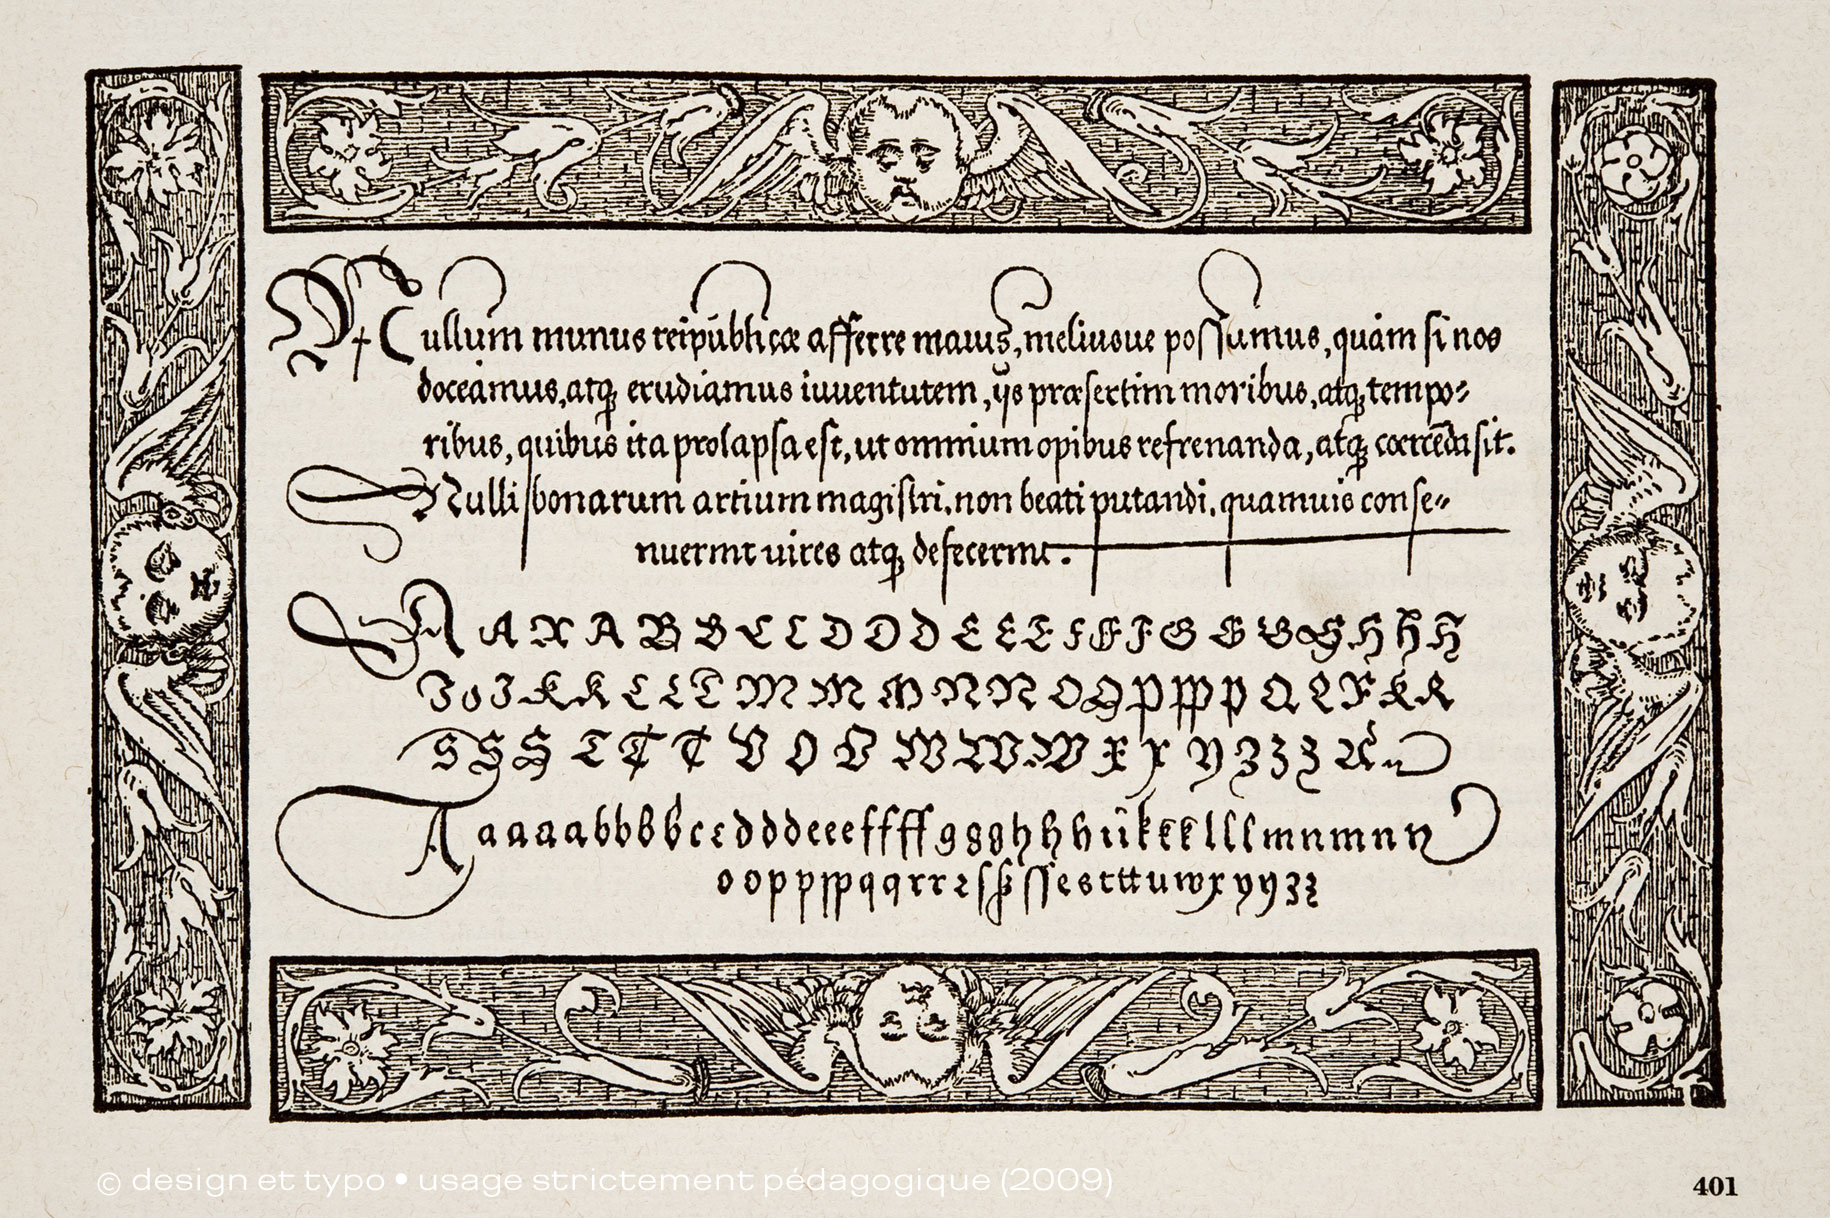 Nullum munus reipublicæ afferre maius, meliusue possumus, quàm si nos
doceamus, atq; erudiamus iuuentutem, ijs præsertim moribus, atq; tempo=
ribus, quibus ita prolapsa est, ut omnium opibus refrenanda, atq; coercēda sit.
Nulli bonarum artium magistri, non beati putandi, quamuis conse=
nuerint uires atq; defecerint.
A A A A B B C C D D D E E E F F F G G G H H H H
J J J K K L L L M M M N N O O P P P Q Q R R R
S S S T T T V V V W W W X X Y Z Z Z
A a a a a b b b b c c d d d e e e f f f f g g g h h h i i k k k l l l m n m n n
o o p p p p q q r r r ſ ß ſſ e s t tt u w x y y z z
© design et typo • usage strictement pédagogique (2009)
401